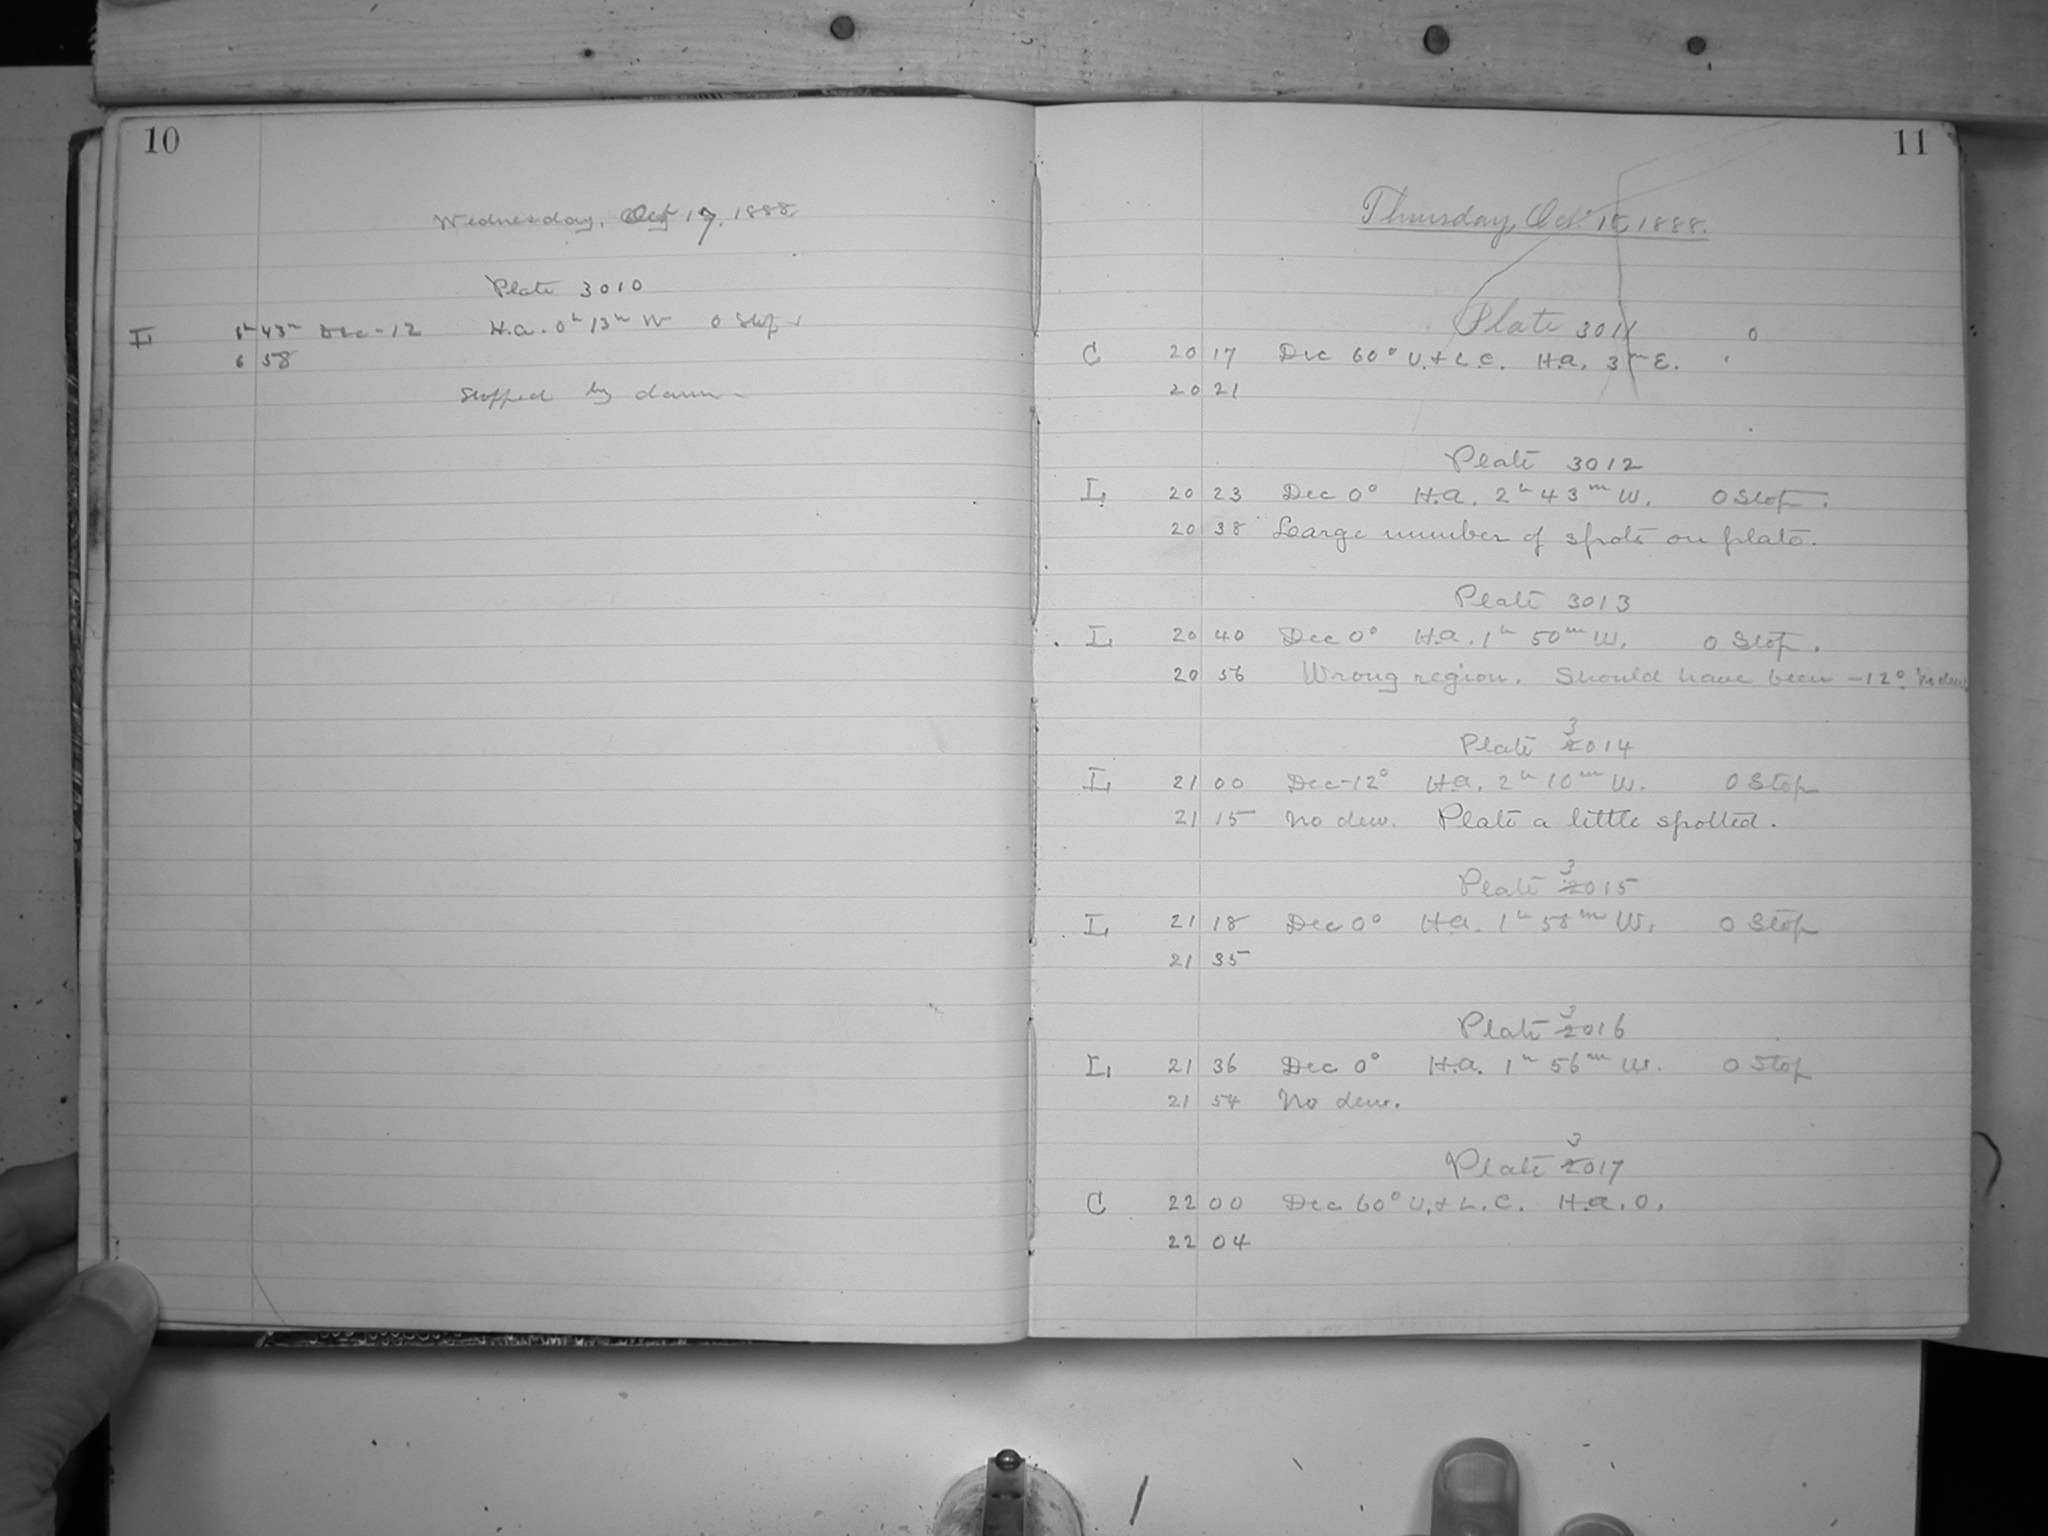 10
Wednesday, Oct 17, 1888.
Plate 3010
I 6h 43m Dec -12 H.a. 0h 13m W 0 Stop
6 58
Stopped by dawn.
11
Thursday, Oct. 18, 1888.
Plate 3011
C 20 17 Dec 60° U. & L.C. H.a. 3m E.
20 21
Plate 3012
I, 20 23 Dec 0° H.a. 2h 43m W. 0 Stop.
20 38 Large number of spots on plate.
Plate 3013
I, 20 40 Dec 0° H.a. 1h 50m W. 0 Stop.
20 56 Wrong region. Should have been -12°. No dew
Plate 3014
I, 21 00 Dec -12° H.a. 2h 10m W. 0 Stop
21 15 No dew. Plate a little spotted.
Plate 3015
I, 21 18 Dec 0° H.a. 1h 58m W. 0 Stop
21 35
Plate 3016
I, 21 36 Dec 0° H.a. 1h 56m W. 0 Stop
21 54 No dew.
Plate 3017
C 22 00 Dec 60° U. & L.C. H.a. 0.
22 04